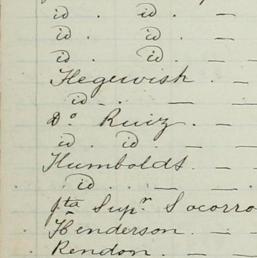 id . id . —
id . id . —
id . id . —
Hegewish . —
id . . — —
Do Ruiz . — —
id . id . — —
Humboldt . —
id . . . — —
pta Supr Socorro
Henderson . — .
Rendon . — —